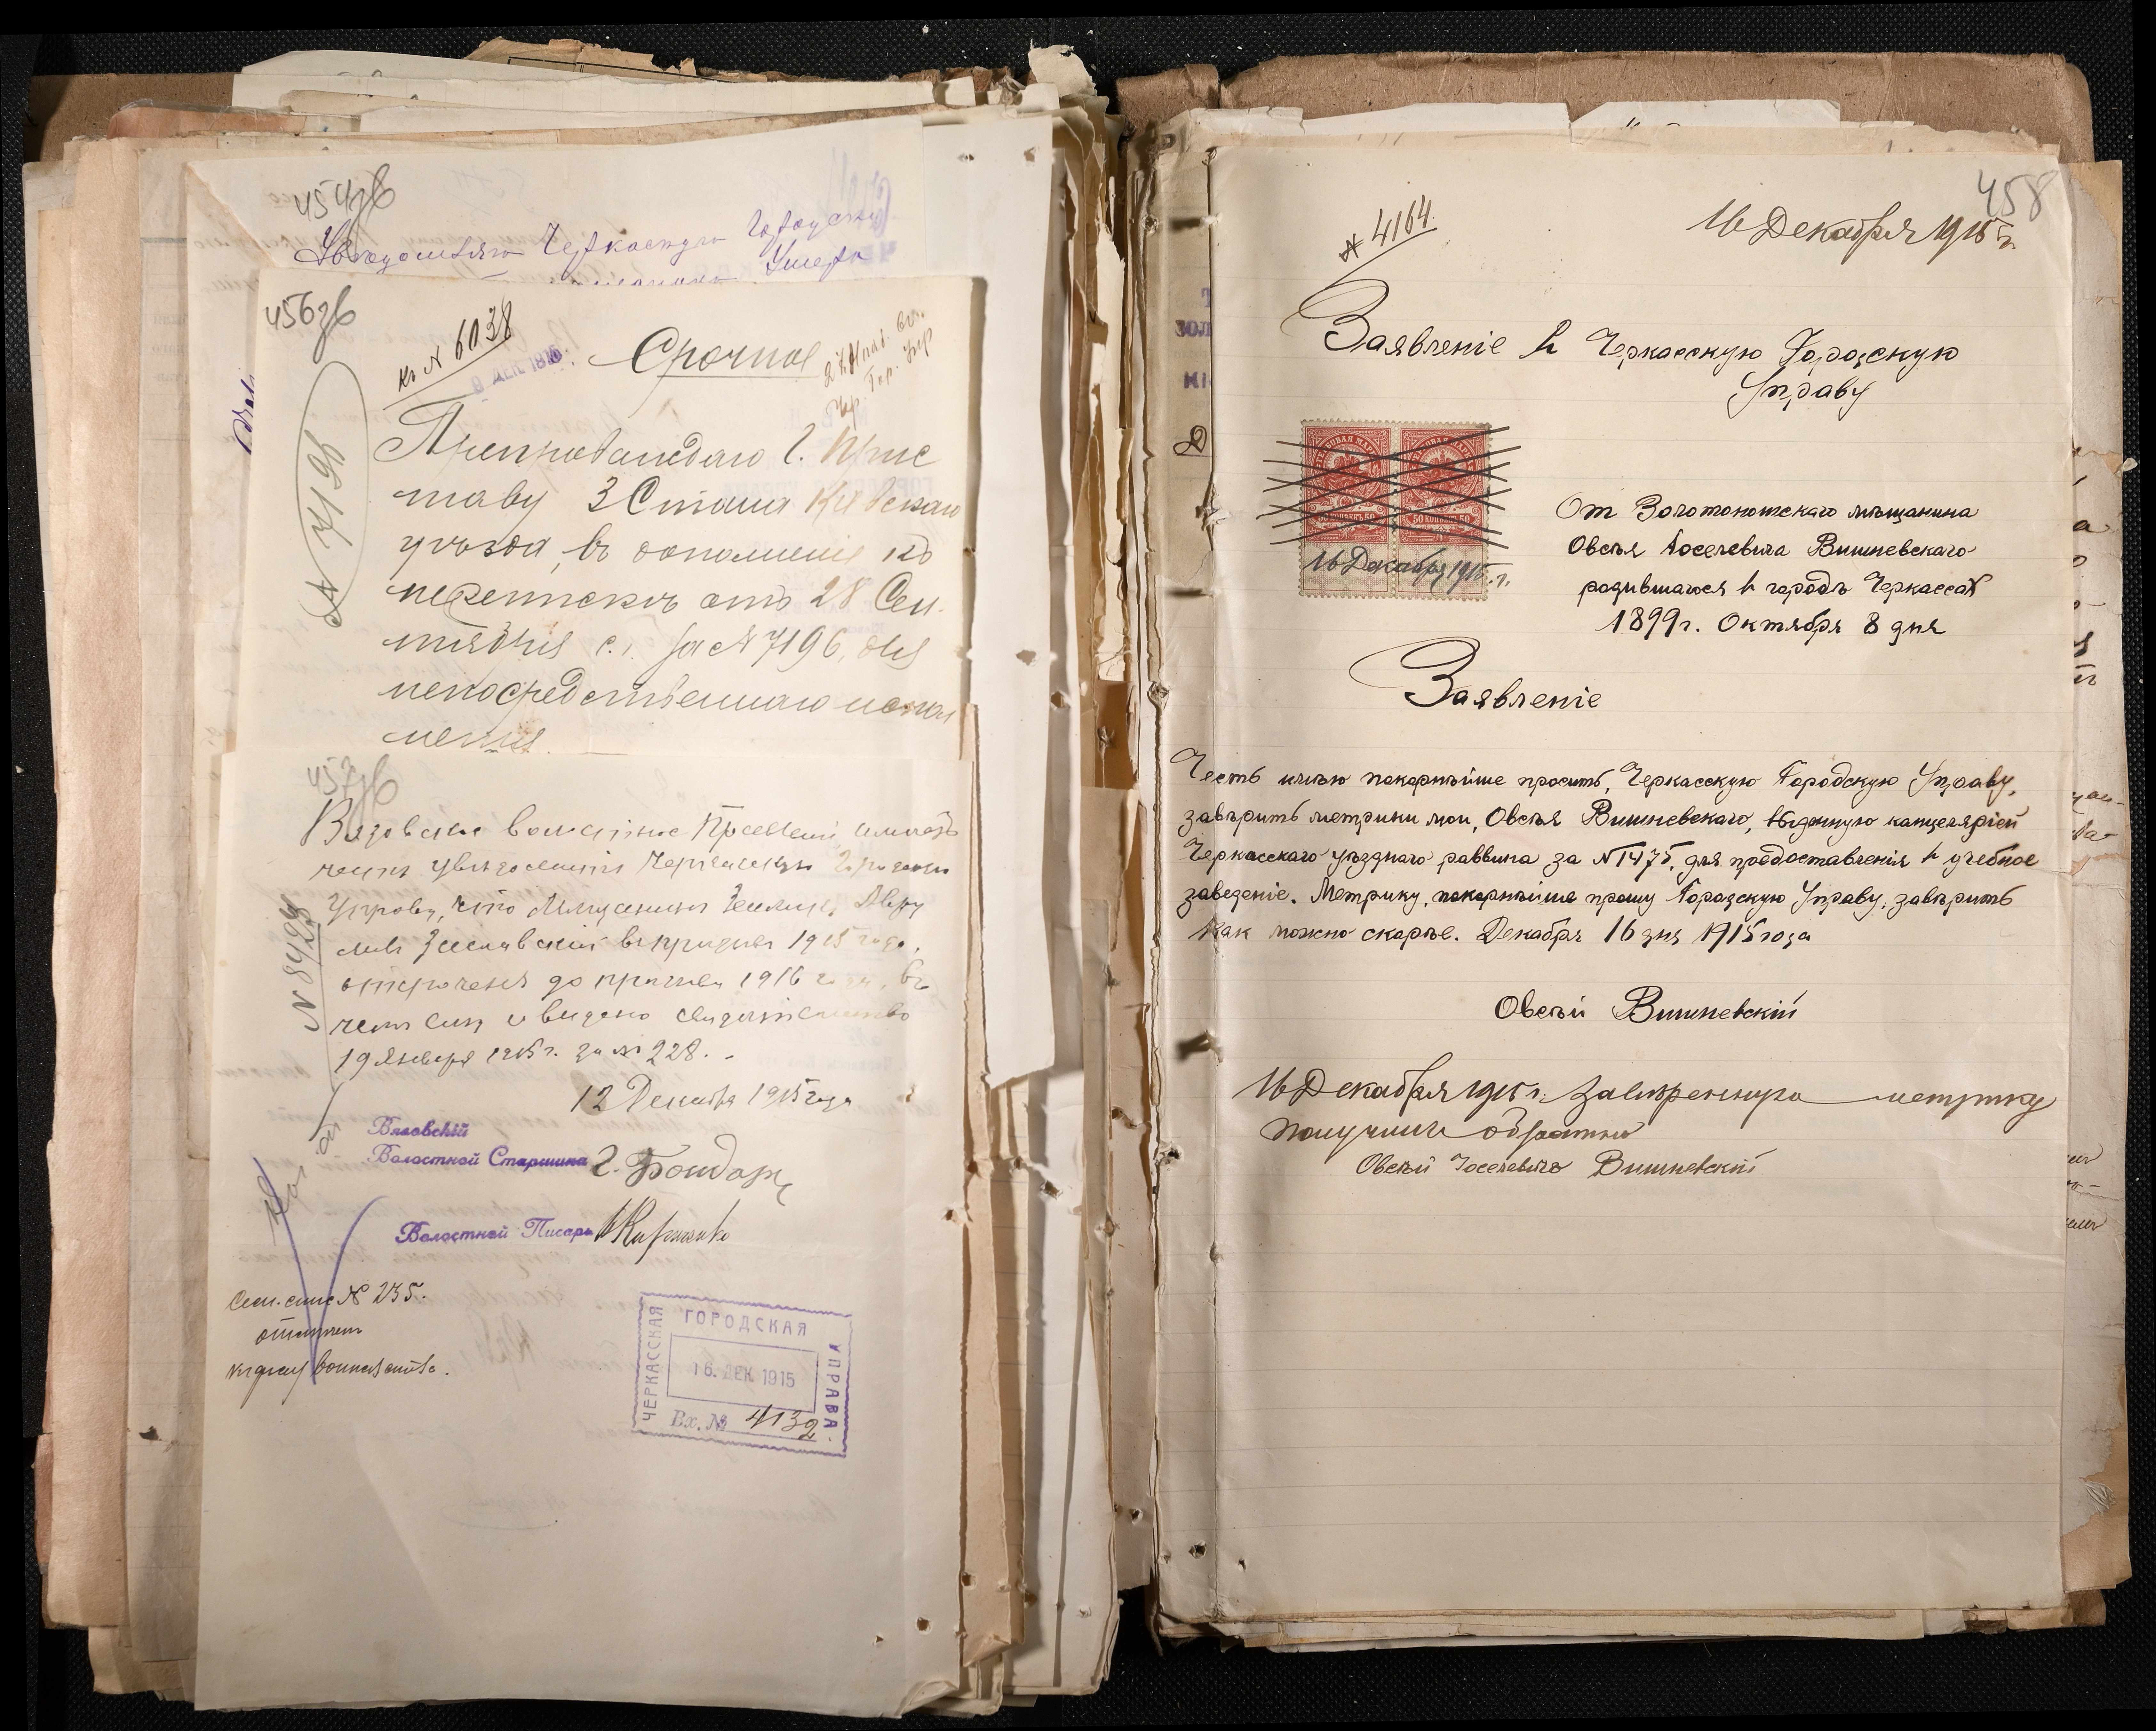 454зв
Черкасскую Городскую
456зв
к. N 6038
9 ДЕК. 1915
Срочное
№ 7196
Препровождаю Г. Прис
таву 3 Стана Киевскаго
уѣзда, въ дополненіе къ
перепискѣ отъ 28 Сен-
тября с.г. за № 7196, для
непосредственнаго испол
ненія.
457зв
Вязовское волостное Правленіе имѣетъ
честь увѣдомить Черкасскую Городскую
Управу, что
въ призывъ 1915 года,
отсроченъ до призыва 1916 года, въ
чемъ ему и выдано свидѣтельство
19 Января 1915 г. за № 228.
12 Декабря 1915 года
N 8429
Вязовскій
Волостной Старшина Г. Бондарь
Волостной Писарь
№ 235.
ЧЕРКАССКАЯ ГОРОДСКАЯ УПРАВА.
16. ДЕК 1915
Вх. № 4132
458
№ 4164.
16 Декабря 1915 г.
Заявленіе в Черкасскую Городскую
Управу
50 КОПѢЕКЪ 50
16 Декабря 1915 г.
От Золотоношскаго мѣщанина
Овсѣя Іоселевича Вишневскаго
родившагося в городѣ Черкассах
1899 г. Октября 8 дня
Заявленіе
Честь имѣю покорнѣйше просить, Черкасскую Городскую Управу,
завѣрить метрики мои, Овсѣя Вишневскаго, выданную канцелярiей
Черкасскаго уѣзднаго раввина за № 1475, для предоставленія в учебное
заведеніе. Метрику, покорнѣйше прошу Городскую Управу, завѣрить
как можно скорѣе. Декабря 16 дня 1915 года
Овсѣй Вишневскій
16 Декабря 1915 г. Завѣренную метрику
получилъ обратно
Овсѣй Іоселевичъ Вишневскій